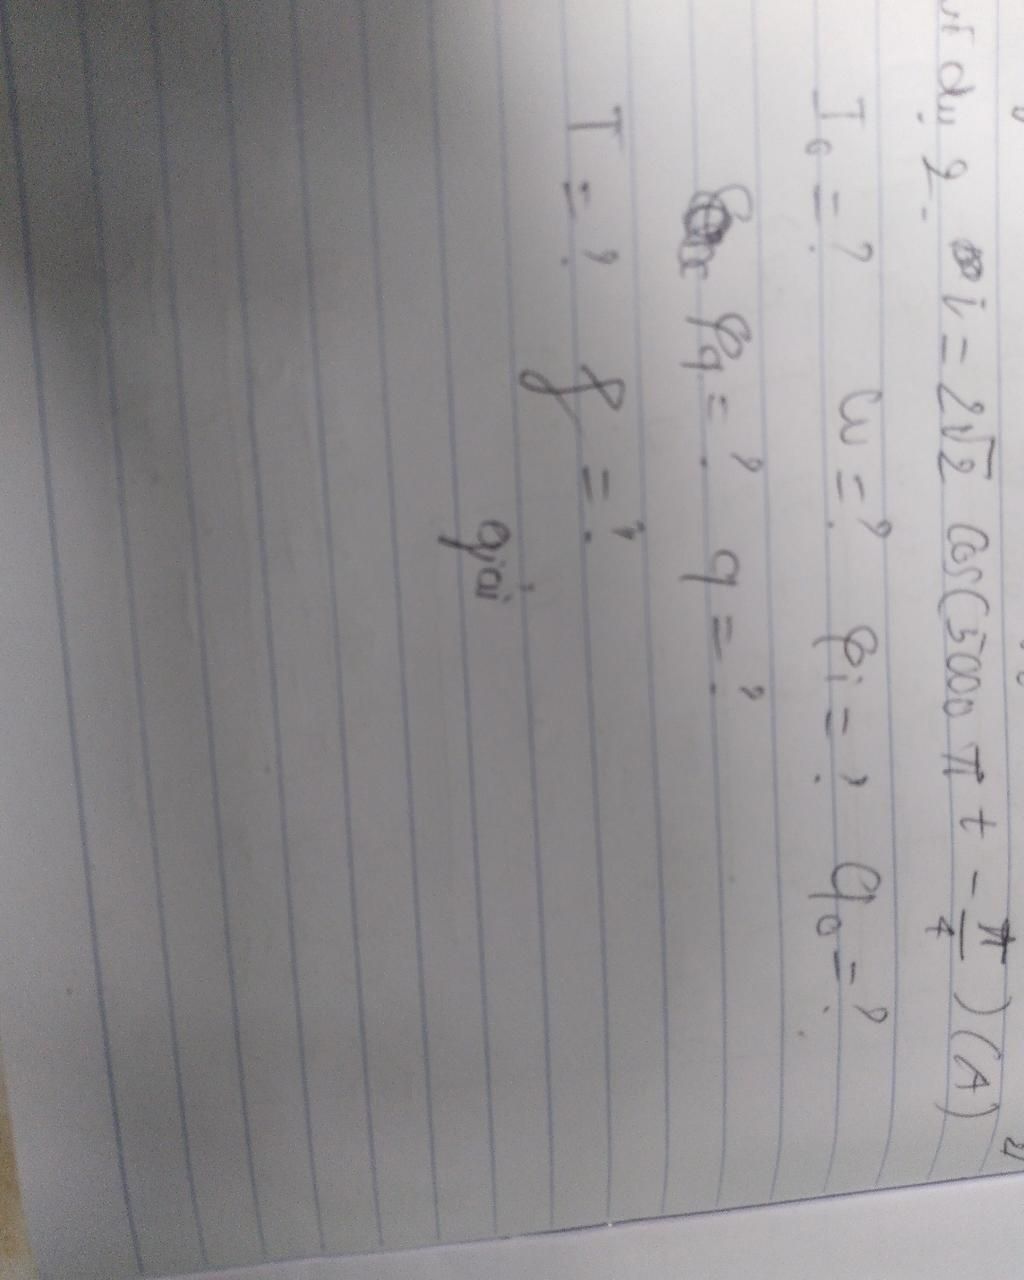 Ví dụ 2. i = 2√2 cos(5000 π t - π/4) (A)
I₀ = ? ω = ? φi = ? q₀ = ?
φq = ? q = ?
T = ? f = ?
giải